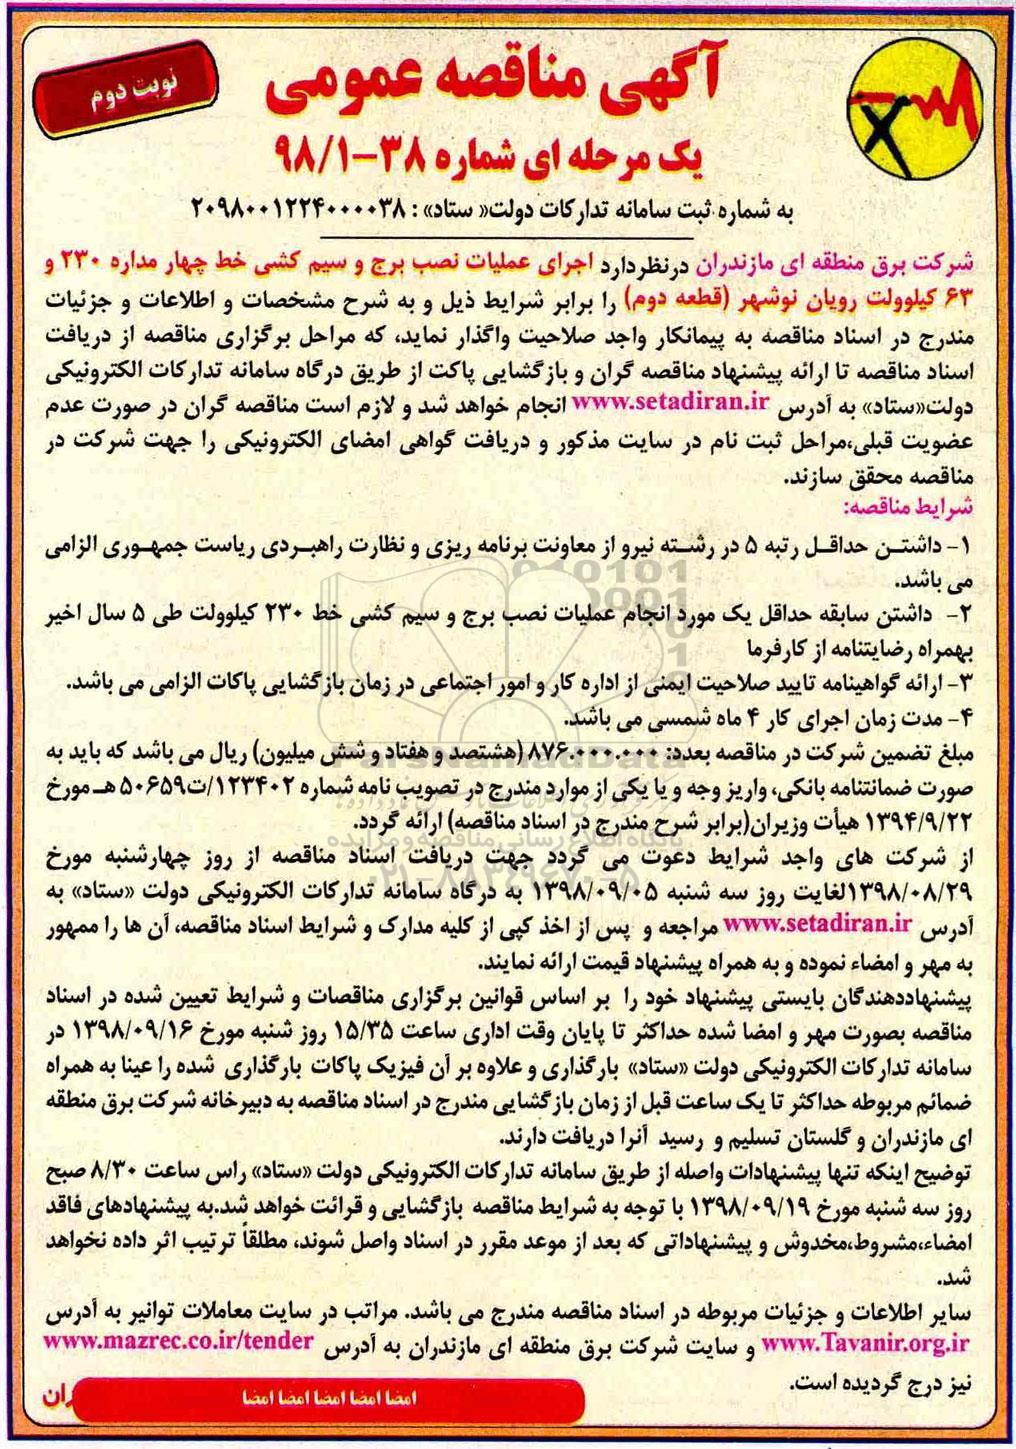 نوبت دوم
آگهی مناقصه عمومی
یک مرحله ای شماره ۳۸-۹۸/۱
به شماره ثبت سامانه تدارکات دولت« ستاد» : ۲۰۹۸۰۰۱۲۲۴۰۰۰۰۳۸
شرکت برق منطقه ای مازندران درنظردارد اجرای عملیات نصب برج و سیم کشی خط چهار مداره ۲۳۰ و
۶۳ کیلوولت رویان نوشهر (قطعه دوم) را برابر شرایط ذیل و به شرح مشخصات و اطلاعات و جزئیات
مندرج در اسناد مناقصه به پیمانکار واجد صلاحیت واگذار نماید، که مراحل برگزاری مناقصه از دریافت
اسناد مناقصه تا ارائه پیشنهاد مناقصه گران و بازگشایی پاکت از طریق درگاه سامانه تدارکات الکترونیکی
دولت«ستاد» به آدرس www.setadiran.ir انجام خواهد شد و لازم است مناقصه گران در صورت عدم
عضویت قبلی،مراحل ثبت نام در سایت مذکور و دریافت گواهی امضای الکترونیکی را جهت شرکت در
مناقصه محقق سازند.
شرایط مناقصه:
۱- داشتن حداقل رتبه ۵ در رشته نیرو از معاونت برنامه ریزی و نظارت راهبردی ریاست جمهوری الزامی
می باشد.
۲- داشتن سابقه حداقل یک مورد انجام عملیات نصب برج و سیم کشی خط ۲۳۰ کیلوولت طی ۵ سال اخیر
بهمراه رضایتنامه از کارفرما
۳- ارائه گواهینامه تایید صلاحیت ایمنی از اداره کار و امور اجتماعی در زمان بازگشایی پاکات الزامی می باشد.
۴- مدت زمان اجرای کار ۴ ماه شمسی می باشد.
مبلغ تضمین شرکت در مناقصه بعدد: ۸۷۶.۰۰۰.۰۰۰ (هشتصد و هفتاد و شش میلیون) ریال می باشد که باید به
صورت ضمانتنامه بانکی، واریز وجه و یا یکی از موارد مندرج در تصویب نامه شماره ۱۲۳۴۰۲/ت۵۰۶۵۹ هـ مورخ
۱۳۹۴/۹/۲۲ هیأت وزیران(برابر شرح مندرج در اسناد مناقصه) ارائه گردد.
از شرکت های واجد شرایط دعوت می گردد جهت دریافت اسناد مناقصه از روز چهارشنبه مورخ
۱۳۹۸/۰۸/۲۹لغایت روز سه شنبه ۱۳۹۸/۰۹/۰۵ به درگاه سامانه تدارکات الکترونیکی دولت «ستاد» به
آدرس www.setadiran.ir مراجعه و پس از اخذ کپی از کلیه مدارک و شرایط اسناد مناقصه، آن ها را ممهور
به مهر و امضاء نموده و به همراه پیشنهاد قیمت ارائه نمایند.
پیشنهاددهندگان بایستی پیشنهاد خود را بر اساس قوانین برگزاری مناقصات و شرایط تعیین شده در اسناد
مناقصه بصورت مهر و امضا شده حداکثر تا پایان وقت اداری ساعت ۱۵/۳۵ روز شنبه مورخ ۱۳۹۸/۰۹/۱۶ در
سامانه تدارکات الکترونیکی دولت «ستاد» بارگذاری و علاوه بر آن فیزیک پاکات بارگذاری شده را عینا به همراه
ضمائم مربوطه حداکثر تا یک ساعت قبل از زمان بازگشایی مندرج در اسناد مناقصه به دبیرخانه شرکت برق منطقه
ای مازندران و گلستان تسلیم و رسید آنرا دریافت دارند.
توضیح اینکه تنها پیشنهادات واصله از طریق سامانه تدارکات الکترونیکی دولت «ستاد» راس ساعت ۸/۳۰ صبح
روز سه شنبه مورخ ۱۳۹۸/۰۹/۱۹ با توجه به شرایط مناقصه بازگشایی و قرائت خواهد شد.به پیشنهادهای فاقد
امضاء،مشروط،مخدوش و پیشنهاداتی که بعد از موعد مقرر در اسناد واصل شوند، مطلقاً ترتیب اثر داده نخواهد
شد.
سایر اطلاعات و جزئیات مربوطه در اسناد مناقصه مندرج می باشد. مراتب در سایت معاملات توانیر به آدرس
www.Tavanir.org.ir و سایت شرکت برق منطقه ای مازندران به آدرس www.mazrec.co.ir/tender
نیز درج گردیده است.
امضا امضا امضا امضا امضا